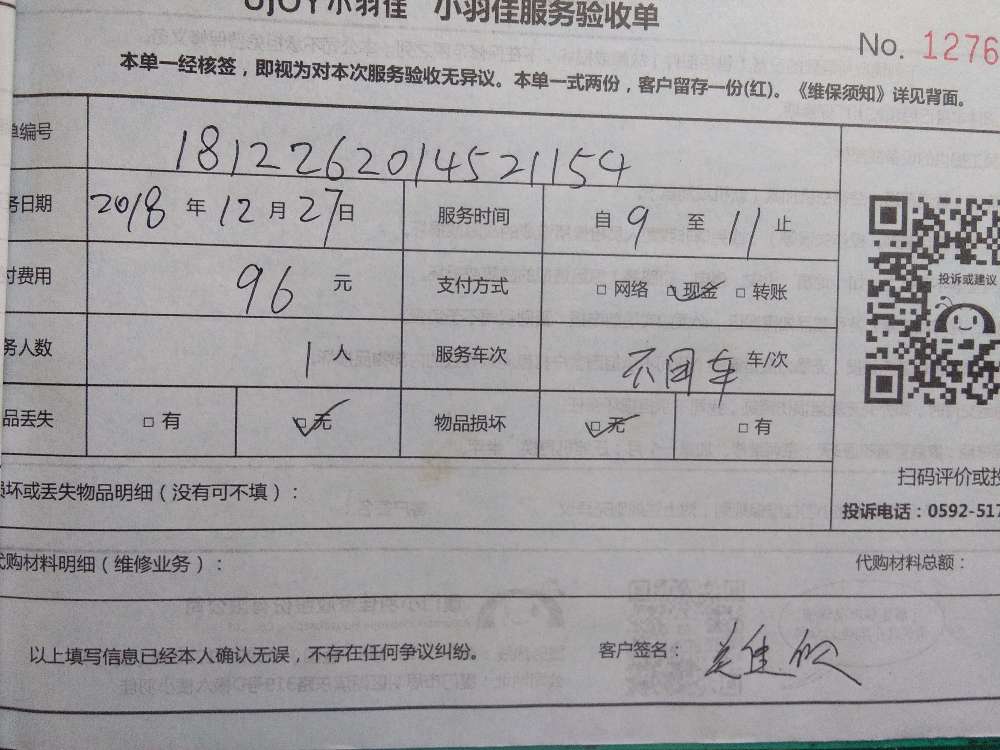 UJOY小羽佳 小羽佳服务验收单
No. 1276
本单一经核签，即视为对本次服务验收无异议。本单一式两份，客户留存一份(红)。《维保须知》详见背面。
单编号 1812262014521154
务日期 2018 年 12 月 27 日 服务时间 自 9 至 11 止
付费用 96 元 支付方式 □ 网络 □ 现金 □ 转账
务人数 1 人 服务车次 不用车 车/次
品丢失 □ 有 □ 无 物品损坏 □ 无 □ 有
投诉或建议
扫码评价或投
损坏或丢失物品明细（没有可不填）：
投诉电话：0592-517
代购材料明细（维修业务）： 代购材料总额：
以上填写信息已经本人确认无误，不存在任何争议纠纷。 客户签名：